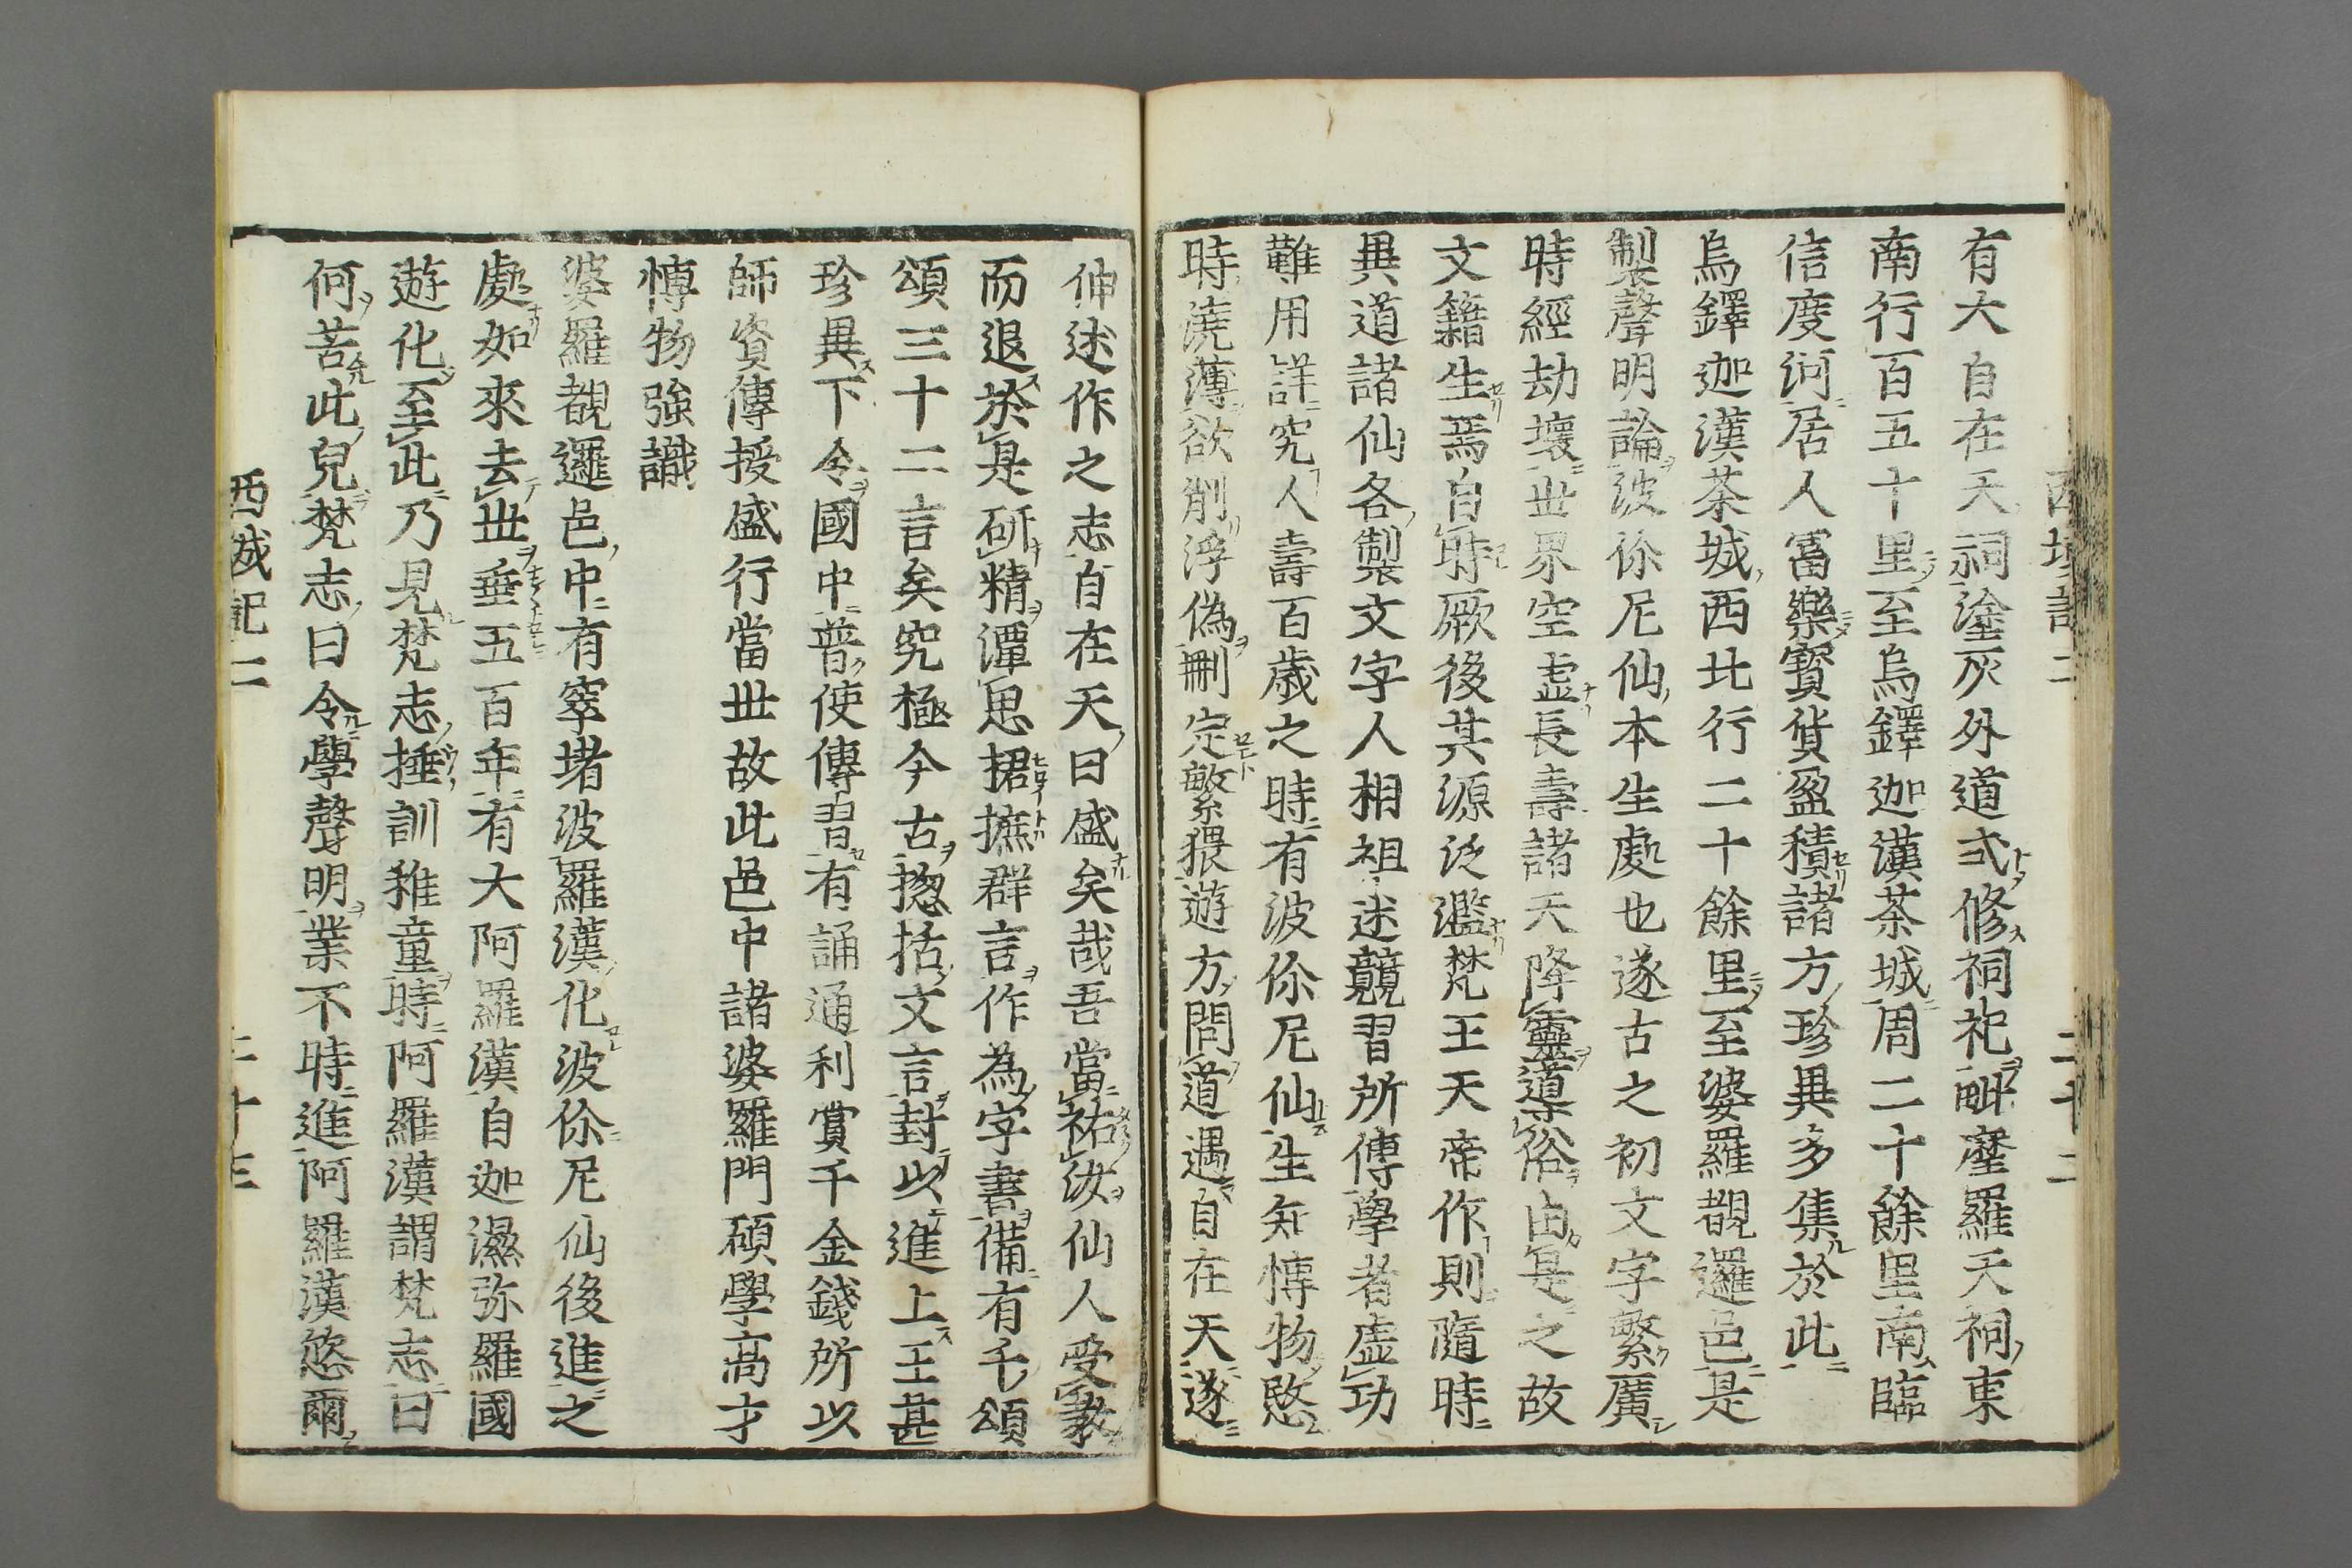 有大自在天祠塗灰外道式修祠祀毗摩羅天祠東
南行百五十里至烏鐸迦漢茶城周二十餘里南臨
信度河居人富樂寳貨盈積諸方珍異多集於此
烏鐸迦漢茶城西北行二十餘里至婆羅覩邏邑是
製聲明論波你尼仙本生處也遂古之初文字繁廣
時經劫壞世界空虛長壽諸天降靈導俗由是之故
文籍生焉自時厥後其源泛濫梵王天帝作則隨時
異道諸仙各製文字人相祖述競習所傳學者虛功
難用詳究人壽百歲之時有波你尼仙生知博物愍
時澆薄欲削浮偽刪定繁猥遊方問道遇自在天遂
伸述作之志自在天曰盛矣哉吾當祐汝仙人受教
而退於是研精潭思捃摭群言作為字書備有千頌
頌三十二言矣究極今古揔括文言封以進上王甚
珍異下令國中普使傳習有誦通利賞千金錢所以
師資傳授盛行當世故此邑中諸婆羅門碩學高才
博物強識
婆羅覩邏邑中有窣堵波羅漢化波你尼仙後進之
處如來去世垂五百年有大阿羅漢自迦濕弥羅國
遊化至此乃見梵志捶訓稚童時阿羅漢謂梵志曰
何苦此兒梵志曰令學聲明業不時進阿羅漢悠爾
西域記二